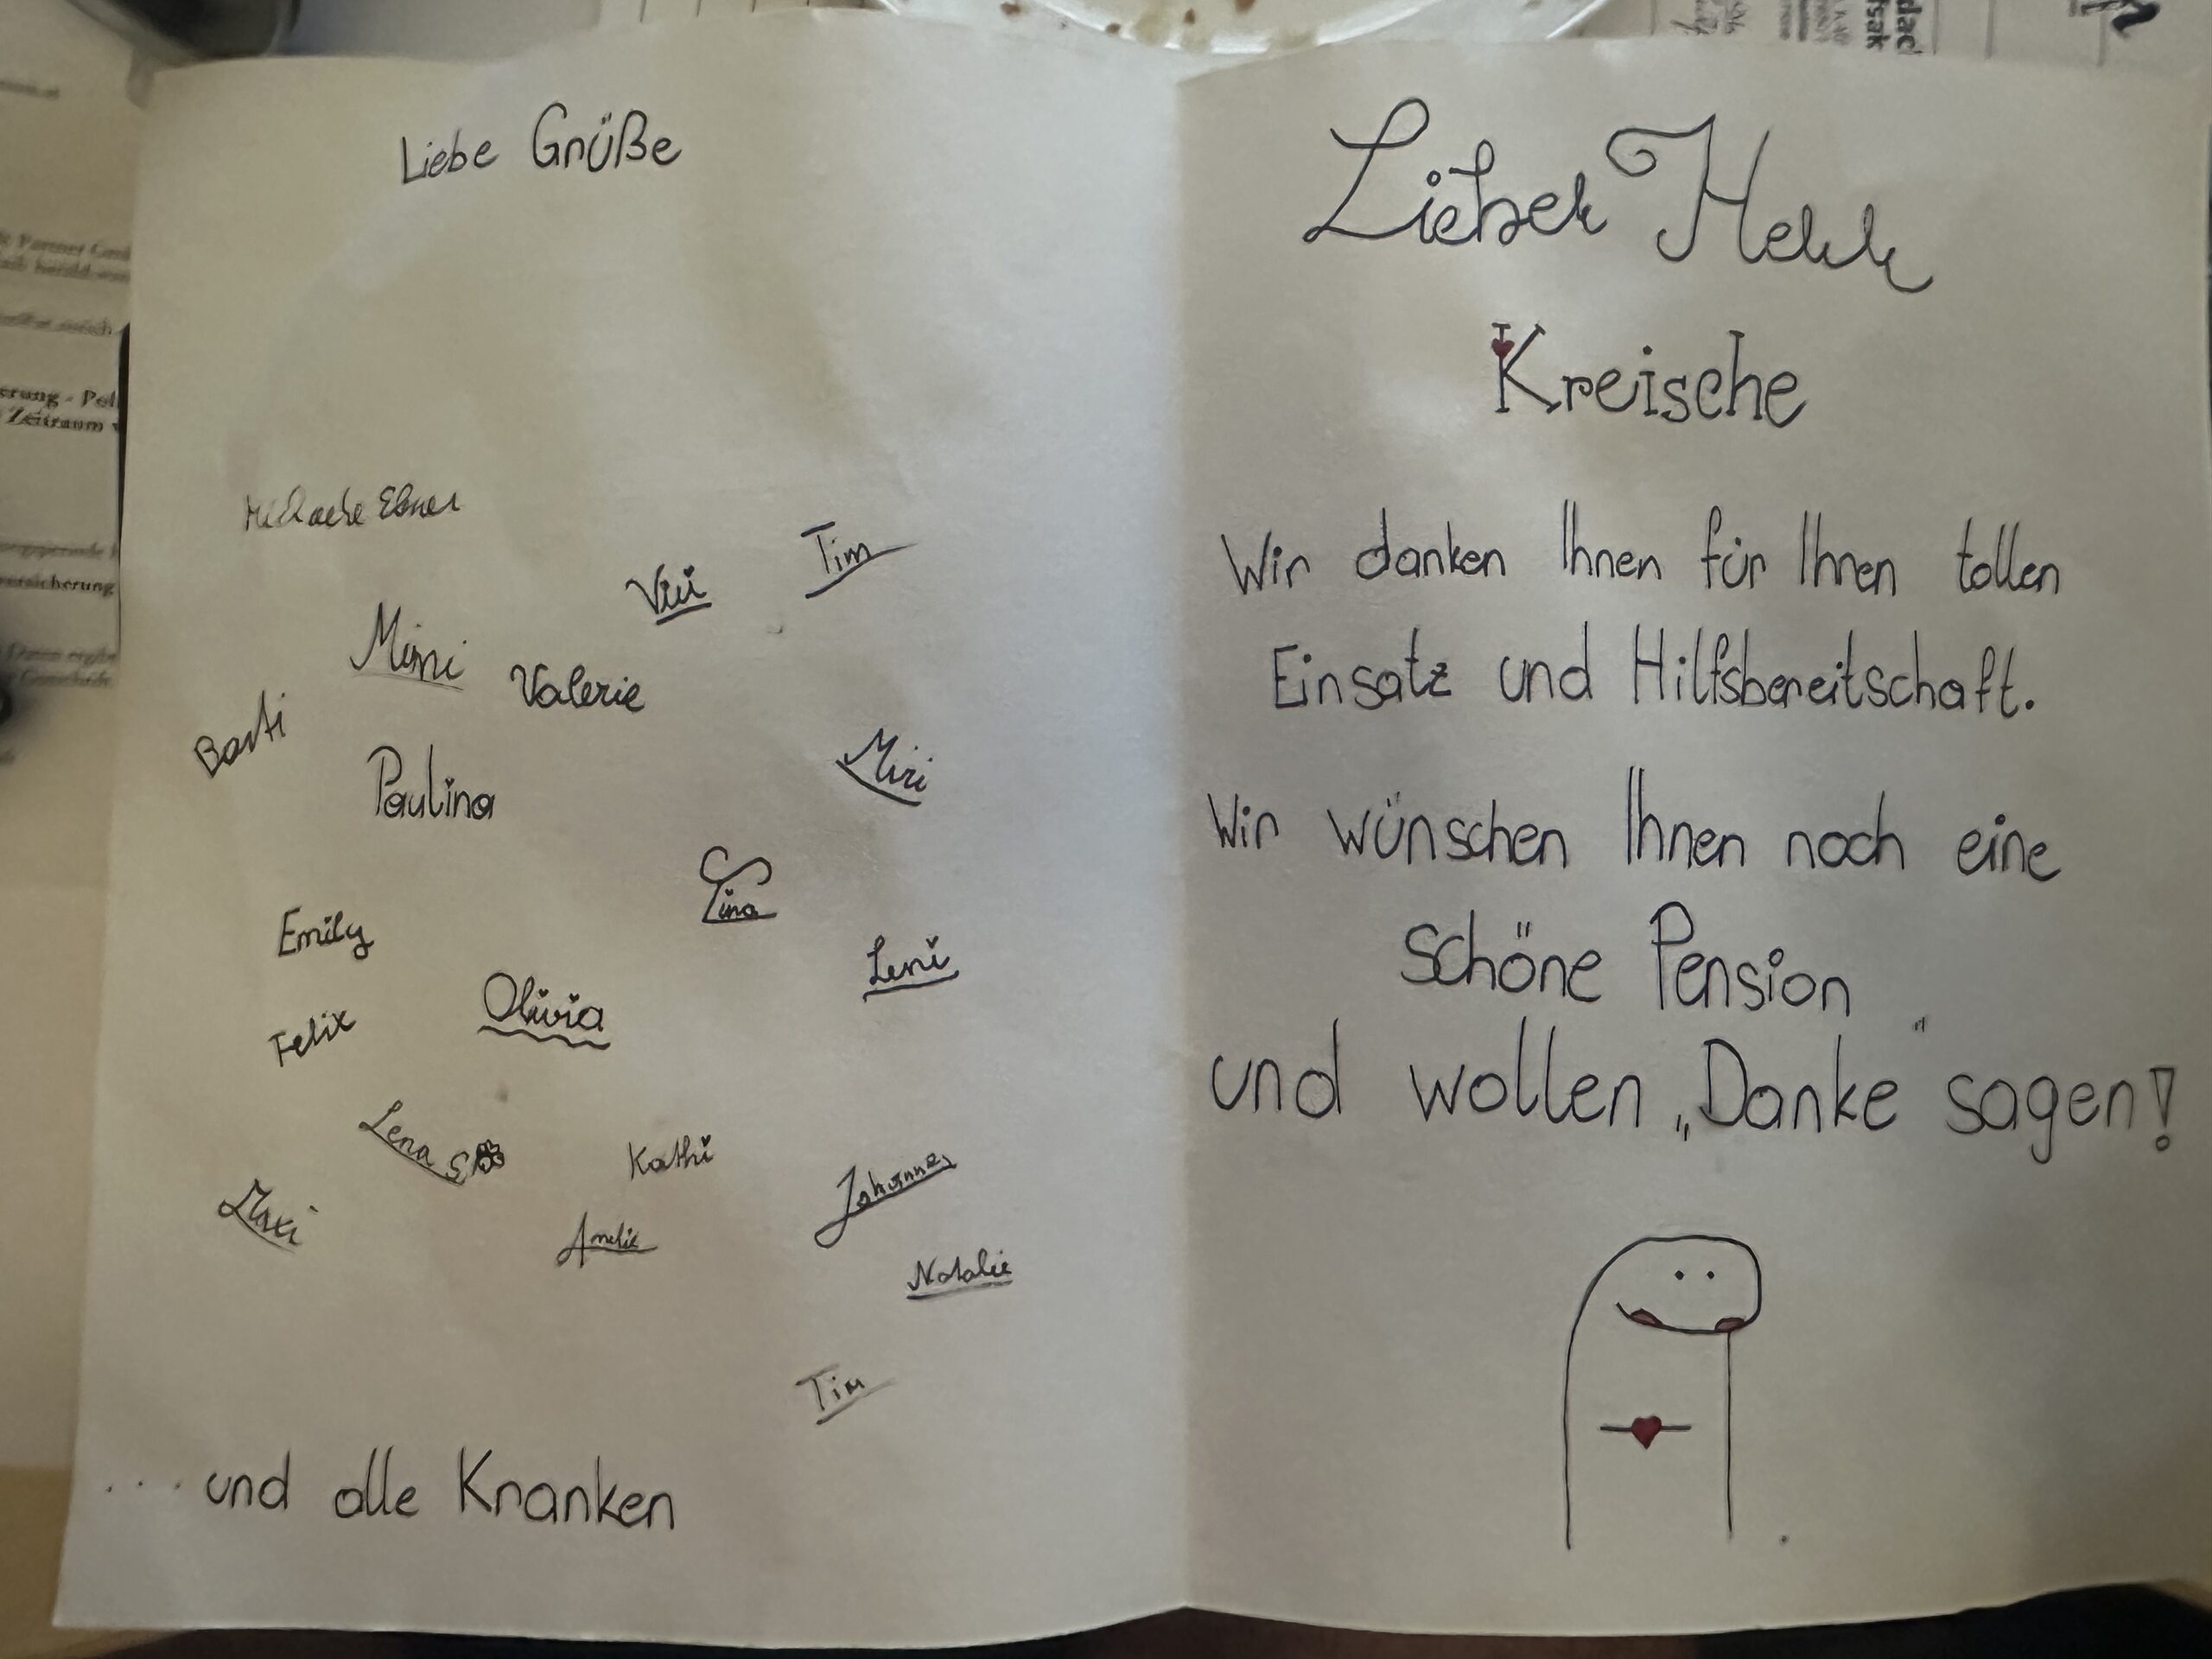 Liebe Grüße
Michaela Ebner
Tim
Vivi
Mimi
Valerie
Basti
Miri
Paulina
Lina
Emily
Leni
Olivia
Felix
Lena S
Kathi
Johannes
Maxi
Amelie
Natalie
Tim
.... und alle Kranken
Lieber Herr
Kreische
Wir danken Ihnen für Ihren tollen
Einsatz und Hilfsbereitschaft.
Wir wünschen Ihnen noch eine
schöne Pension
und wollen „Danke" sagen!
erung - Pol
Zeitraum
versicherung
dacl
fsak